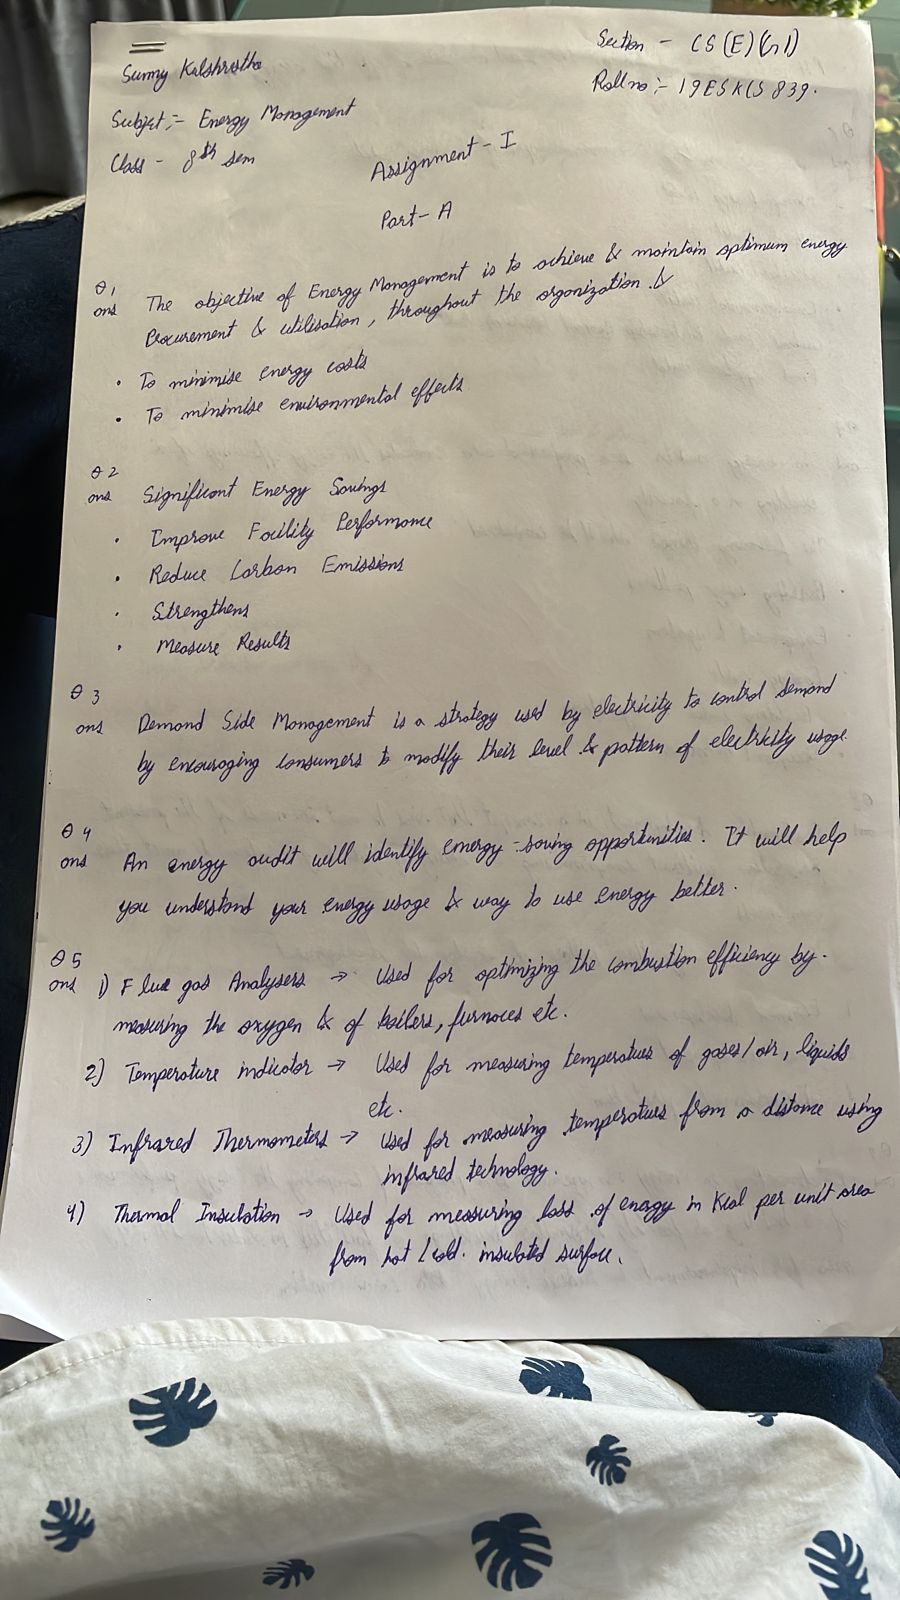 Sunny Kulshrestha
Section - CS(E)(G1)
Roll no :- 19ESKCS839.
Subject :- Energy Management
Class - 8th sem
Assignment - I
Part - A
Q1
ans The objective of Energy Management is to achieve & maintain optimum energy
Procurement & utilisation, throughout the organization. &
• To minimise energy costs
• To minimise environmental effects
Q2
ans Significant Energy Savings
• Improve Facility Performance
• Reduce Carbon Emissions
• Strengthens
• Measure Results
Q3
ans Demand Side Management is a strategy used by electricity to control demand
by encouraging consumers to modify their level & pattern of electricity usage.
Q4
ans An energy audit will identify energy-saving opportunities. It will help
you understand your energy usage & way to use energy better.
Q5
ans 1) Flue gas Analysers → Used for optimizing the combustion efficiency by.
measuring the oxygen & of boilers, furnaces etc.
2) Temperature indicator → Used for measuring temperatures of gases/air, liquids
etc.
3) Infrared Thermometers → Used for measuring temperatures from a distance using
infrared technology.
4) Thermal Insulation → Used for measuring loss of energy in Kcal per unit area
from hot/cold. insulated surface.